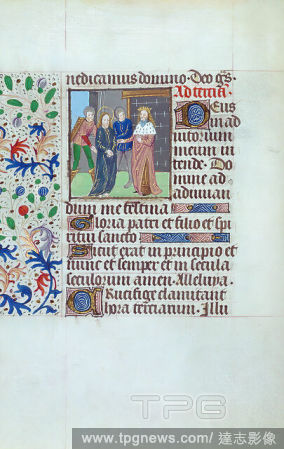 nedicamus domino. Deo grs.
Ad tercia.
Deus
in ad
iutorium
meum in
tende. Do
mine ad
adiuuan
dum me festina
Gloria patri et filio et spi
ritui sancto
Sicut erat in principio et
nunc et semper et in secula
seculorum amen. Alleluya.
Crucifige clamitant
hora terciarum. Illu
TPG
www.tpgnews.com/ 達志影像